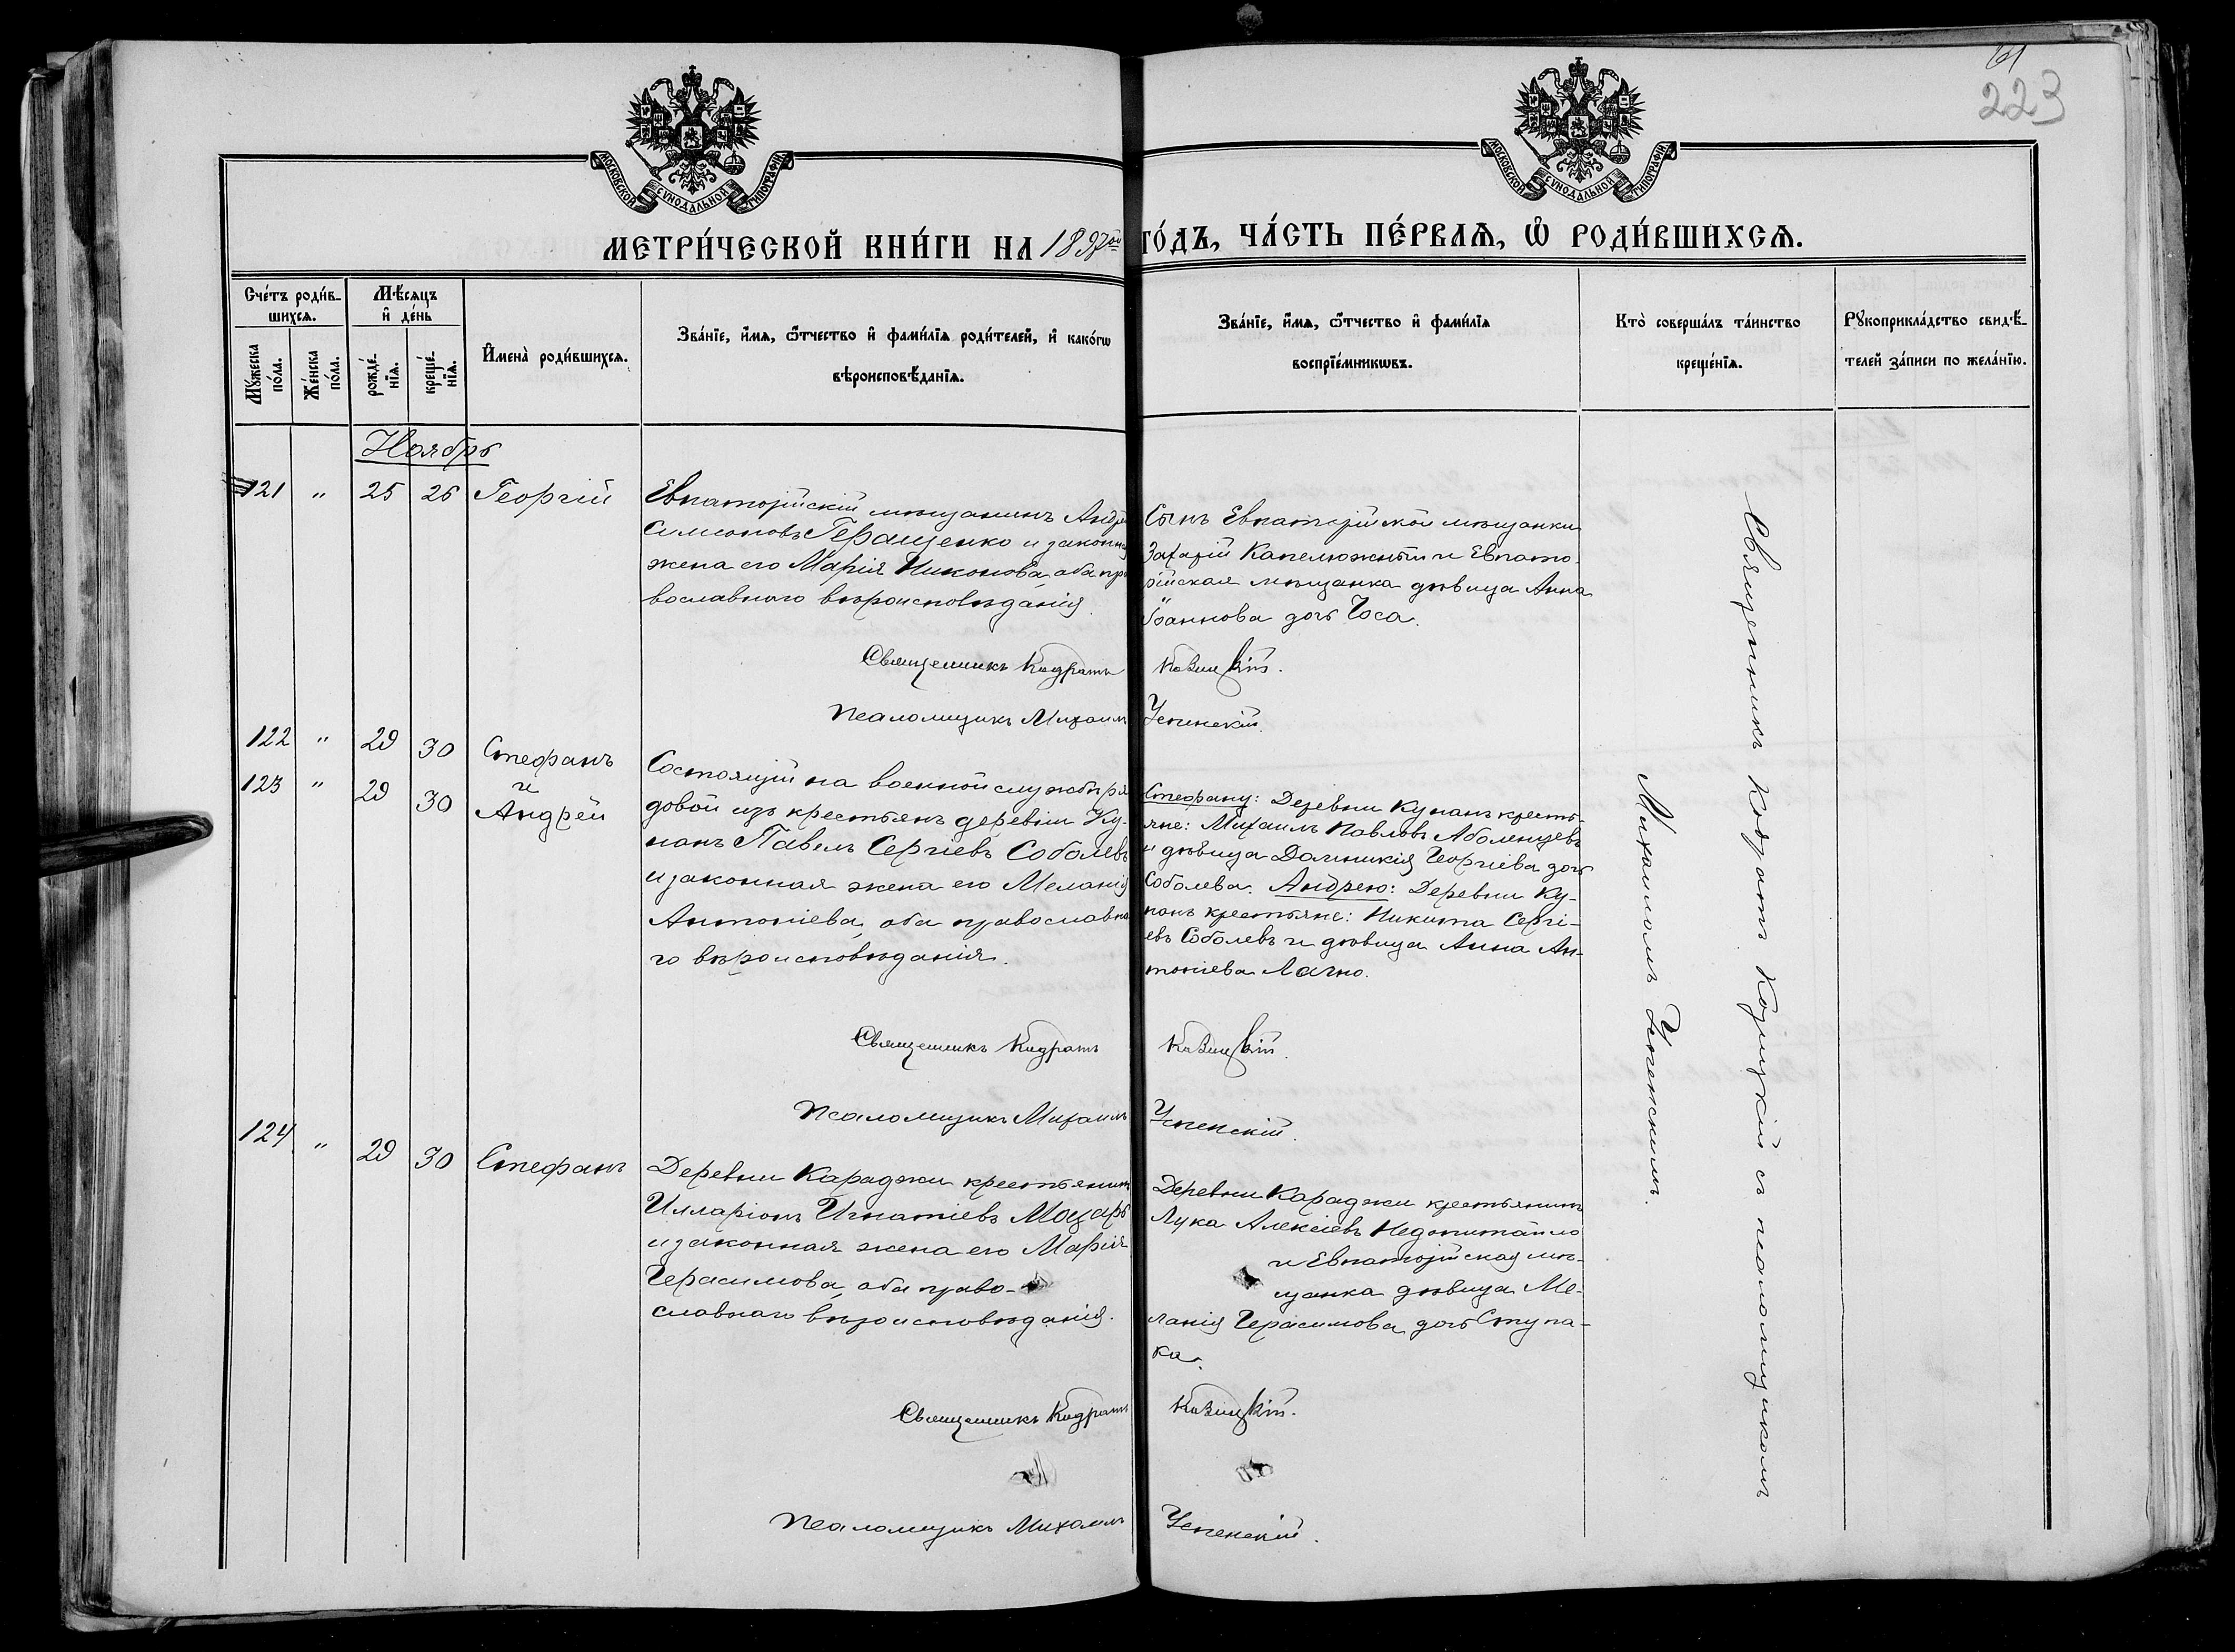 61
223
МОСКОВСКОЙ СѴНОДАЛЬНОЙ ТИПОГРАФІИ
МОСКОВСКОЙ СѴНОДАЛЬНОЙ ТИПОГРАФІИ
МЕТРИ́ЧЕСКОЙ КНИ́ГИ НА 1897ой ГО́ДЪ, ЧА́СТЬ ПЕ́РВАѦ, Ѡ҆ РОДИ́ВШИХСѦ.
Сче́тъ роди́в-
шихсѧ.
Мꙋ́жеска
по́ла.
Же́нска
по́ла.
Мѣ́сѧцъ
и҆ де́нь
рожде́-
нїѧ.
креще́-
нїѧ.
И҆мена̀ роди́вшихсѧ.
Зва́нїе, и҆́мѧ, ѻ҆́тчество и҆ фами́лїѧ роди́телей, и҆ како́гѡ
вѣроисповѣ́данїѧ.
Зва́нїе, и҆́мѧ, ѻ҆́тчество и҆ фами́лїѧ
воспрїе́мникѡвъ.
Кто̀ соверша́лъ та́инство
креще́нїѧ.
Рꙋкоприкла́дство свидѣ́-
телей за́писи по жела́нїю.
Ноябрь
121 " 25 26 Георгій
Евпаторійскій мѣщанинъ Андрей
Симоновъ Геращенко и законная
жена его Марія Никонова, оба пра
вославнаго вѣроисповѣданія.
Сынъ Евпаторійской мѣщанки
Захарій Капелюжный и Евпато-
рійская мѣщанка дѣвица Анна
Іоаннова дочь Чоса.
Священникъ Кодратъ Козицкій.
Псаломщикъ Михаилъ Успенскій.
122 " 29 30 Стефанъ
и
123 " 29 30 Андрей
Состоящій на военной службѣ ря
довой изъ крестьянъ деревни Ку-
панъ Павелъ Сергіевъ Соболевъ
и законная жена его Меланія
Антоніева, оба православна
го вѣроисповѣданія.
Стефану: Деревни Купанъ кресть-
яне: Михаилъ Павловъ Аболенцевъ
и дѣвица Домникія Георгіева дочь
Соболева. Андрею: Деревни Ку-
панъ крестьяне: Никита Сергі-
евъ Соболевъ и дѣвица Анна Ан-
тоніева Лачно.
Священникъ Кодратъ Козицкій.
Псаломщикъ Михаилъ Успенскій.
124 " 29 30 Стефанъ
Деревни Караджи крестьянинъ
Илларіонъ Игнатіевъ Моцарь
и законная жена его Марія
Герасимова, оба право-
славнаго вѣроисповѣданія.
Деревни Караджи крестьянинъ
Лука Алексіевъ Недопитайло
и Евпаторійская мѣ-
щанка дѣвица Ме-
ланія Герасимова дочь Ступа-
ка.
Священникъ Кодратъ Козицкій.
Псаломщикъ Михаилъ Успенскій.
Священникъ Кодратъ Козицкій съ псаломщикомъ
Михаиломъ Успенскимъ.